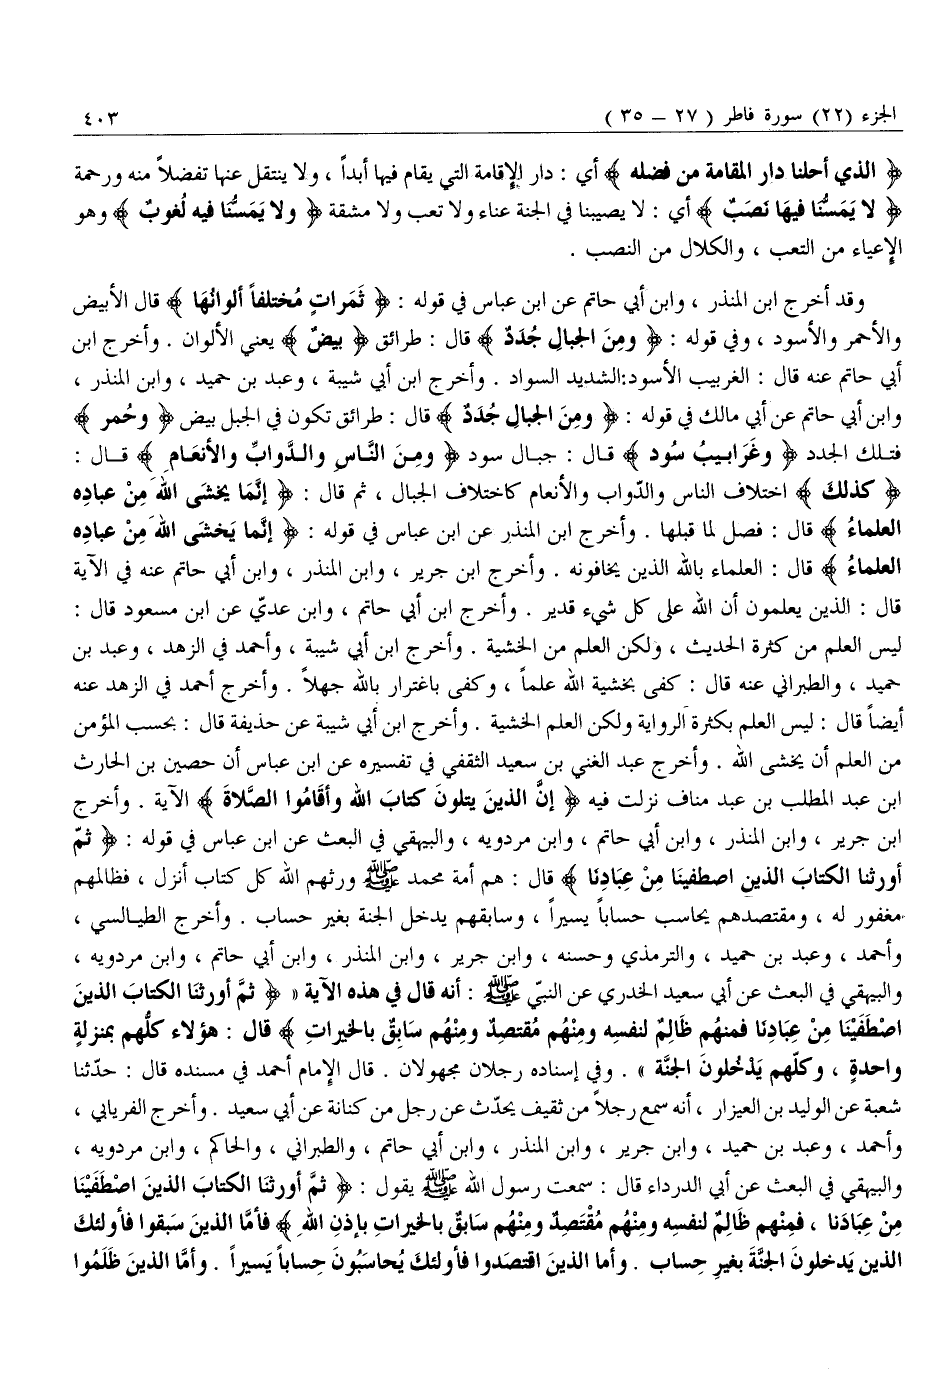 الجزء (٢٢) سورة فاطر ( ٢٧ – ٣٥ ) ٤٠٣
﴿ الذي أحلنا دار المقامة من فضله ﴾ أي : دار الإقامة التي يقام فيها أبداً ، ولا ينتقل عنها تفضلاً منه ورحمة
﴿ لا يَمَسُّنَا فيهَا نَصَبٌ ﴾ أي : لا يصيبنا في الجنة عناء ولا تعب ولا مشقة ﴿ ولا يَمَسُّنا فيه لُغوبٌ ﴾ وهو
الإعياء من التعب ، والكلال من النصب .
وقد أخرج ابن المنذر ، وابن أبي حاتم عن ابن عباس في قوله : ﴿ ثَمَراتٍ مُختلفاً ألوانُهَا ﴾ قال الأبيض
والأحمر والأسود ، وفي قوله : ﴿ ومِنَ الجبالِ جُدَدٌ ﴾ قال : طرائق ﴿ بيضٌ ﴾ يعني الألوان . وأخرج ابن
أبي حاتم عنه قال : الغربيب الأسود:الشديد السواد . وأخرج ابن أبي شيبة ، وعبد بن حميد ، وابن المنذر ،
وابن أبي حاتم عن أبي مالك في قوله : ﴿ ومِنَ الجبالِ جُدَدٌ ﴾ قال : طرائق تكون في الجبل بيض ﴿ وحُمر ﴾
فتلك الجدد ﴿ وغَرَابيبُ سُود ﴾ قال : جبال سود ﴿ ومِنَ النَّاسِ والدَّوابِّ والأنعَامِ ﴾ قال :
﴿ كذلكَ ﴾ اختلاف الناس والدّواب والأنعام كاختلاف الجبال ، ثم قال : ﴿ إنَّمَا يخشَى اللهَ مِنْ عباده
العلماءُ ﴾ قال : فصل لما قبلها . وأخرج ابن المنذر عن ابن عباس في قوله : ﴿ إنَّما يَخشَى اللهَ مِنْ عبادِه
العلماءُ ﴾ قال : العلماء بالله الذين يخافونه . وأخرج ابن جرير ، وابن المنذر ، وابن أبي حاتم عنه في الآية
قال : الذين يعلمون أن الله على كل شيء قدير . وأخرج ابن أبي حاتم ، وابن عديّ عن ابن مسعود قال :
ليس العلم من كثرة الحديث ، ولكن العلم من الخشية . وأخرج ابن أبي شيبة ، وأحمد في الزهد ، وعبد بن
حميد ، والطبراني عنه قال : كفى بخشية الله علماً ، وكفى باغترار بالله جهلاً . وأخرج أحمد في الزهد عنه
أيضاً قال : ليس العلم بكثرة الرواية ولكن العلم الخشية . وأخرج ابن أبي شيبة عن حذيفة قال : بحسب المؤمن
من العلم أن يخشى الله . وأخرج عبد الغني بن سعيد الثقفي في تفسيره عن ابن عباس أن حصين بن الحارث
ابن عبد المطلب بن عبد مناف نزلت فيه ﴿ إنَّ الذينَ يتلونَ كتابَ الله وأقَامُوا الصَّلاةَ ﴾ الآية . وأخرج
ابن جرير ، وابن المنذر ، وابن أبي حاتم ، وابن مردويه ، والبيهقي في البعث عن ابن عباس في قوله : ﴿ ثمّ
أورثنا الكتابَ الذين اصطفينا مِنْ عِبَادِنَا ﴾ قال : هم أمة محمد ﷺ ورثهم الله كل كتاب أنزل ، فظالمهم
مغفور له ، ومقتصدهم يحاسب حساباً يسيراً ، وسابقهم يدخل الجنة بغير حساب . وأخرج الطيالسي ،
وأحمد ، وعبد بن حميد ، والترمذي وحسنه ، وابن جرير ، وابن المنذر ، وابن أبي حاتم ، وابن مردويه ،
والبيهقي في البعث عن أبي سعيد الخدري عن النبيّ ﷺ : أنه قال في هذه الآية « ﴿ ثمَّ أورثنَا الكتابَ الذينَ
اصْطَفَيْنَا مِنْ عِبَادِنَا فمنهُم ظَالِمٌ لنفسِه ومنْهُم مُقتصدٌ ومنْهُم سَابِقٌ بالخيراتِ ﴾ قال : هؤلاء كلُّهم بمنزلةٍ
واحدةٍ ، وكلّهم يَدْخُلونَ الجنَّة » . وفي إسناده رجلان مجهولان . قال الإمام أحمد في مسنده قال : حدّثنا
شعبة عن الوليد بن العيزار ، أنه سمع رجلاً من ثقيف يحدّث عن رجل من كنانة عن أبي سعيد . وأخرج الفريابي ،
وأحمد ، وعبد بن حميد ، وابن جرير ، وابن المنذر ، وابن أبي حاتم ، والطبراني ، والحاكم ، وابن مردويه ،
والبيهقي في البعث عن أبي الدرداء قال : سمعت رسول الله ﷺ يقول : ﴿ ثمَّ أورثنَا الكتابَ الذينَ اصْطَفَيْنَا
مِنْ عِبَادنَا ، فمِنْهم ظَالِمٌ لنفسِه ومنْهُم مُقْتَصِدٌ ومنْهُم سَابقٌ بالخيراتِ بإذنِ اللهِ ﴾ فأمَّا الذينَ سَبقوا فأولئكَ
الذين يَدخلونَ الجنَّةَ بغيرِ حِساب . وأما الذينَ اقتصَدوا فأولئكَ يُحاسَبُونَ حِساباً يَسيراً . وأمَّا الذينَ ظَلَمُوا